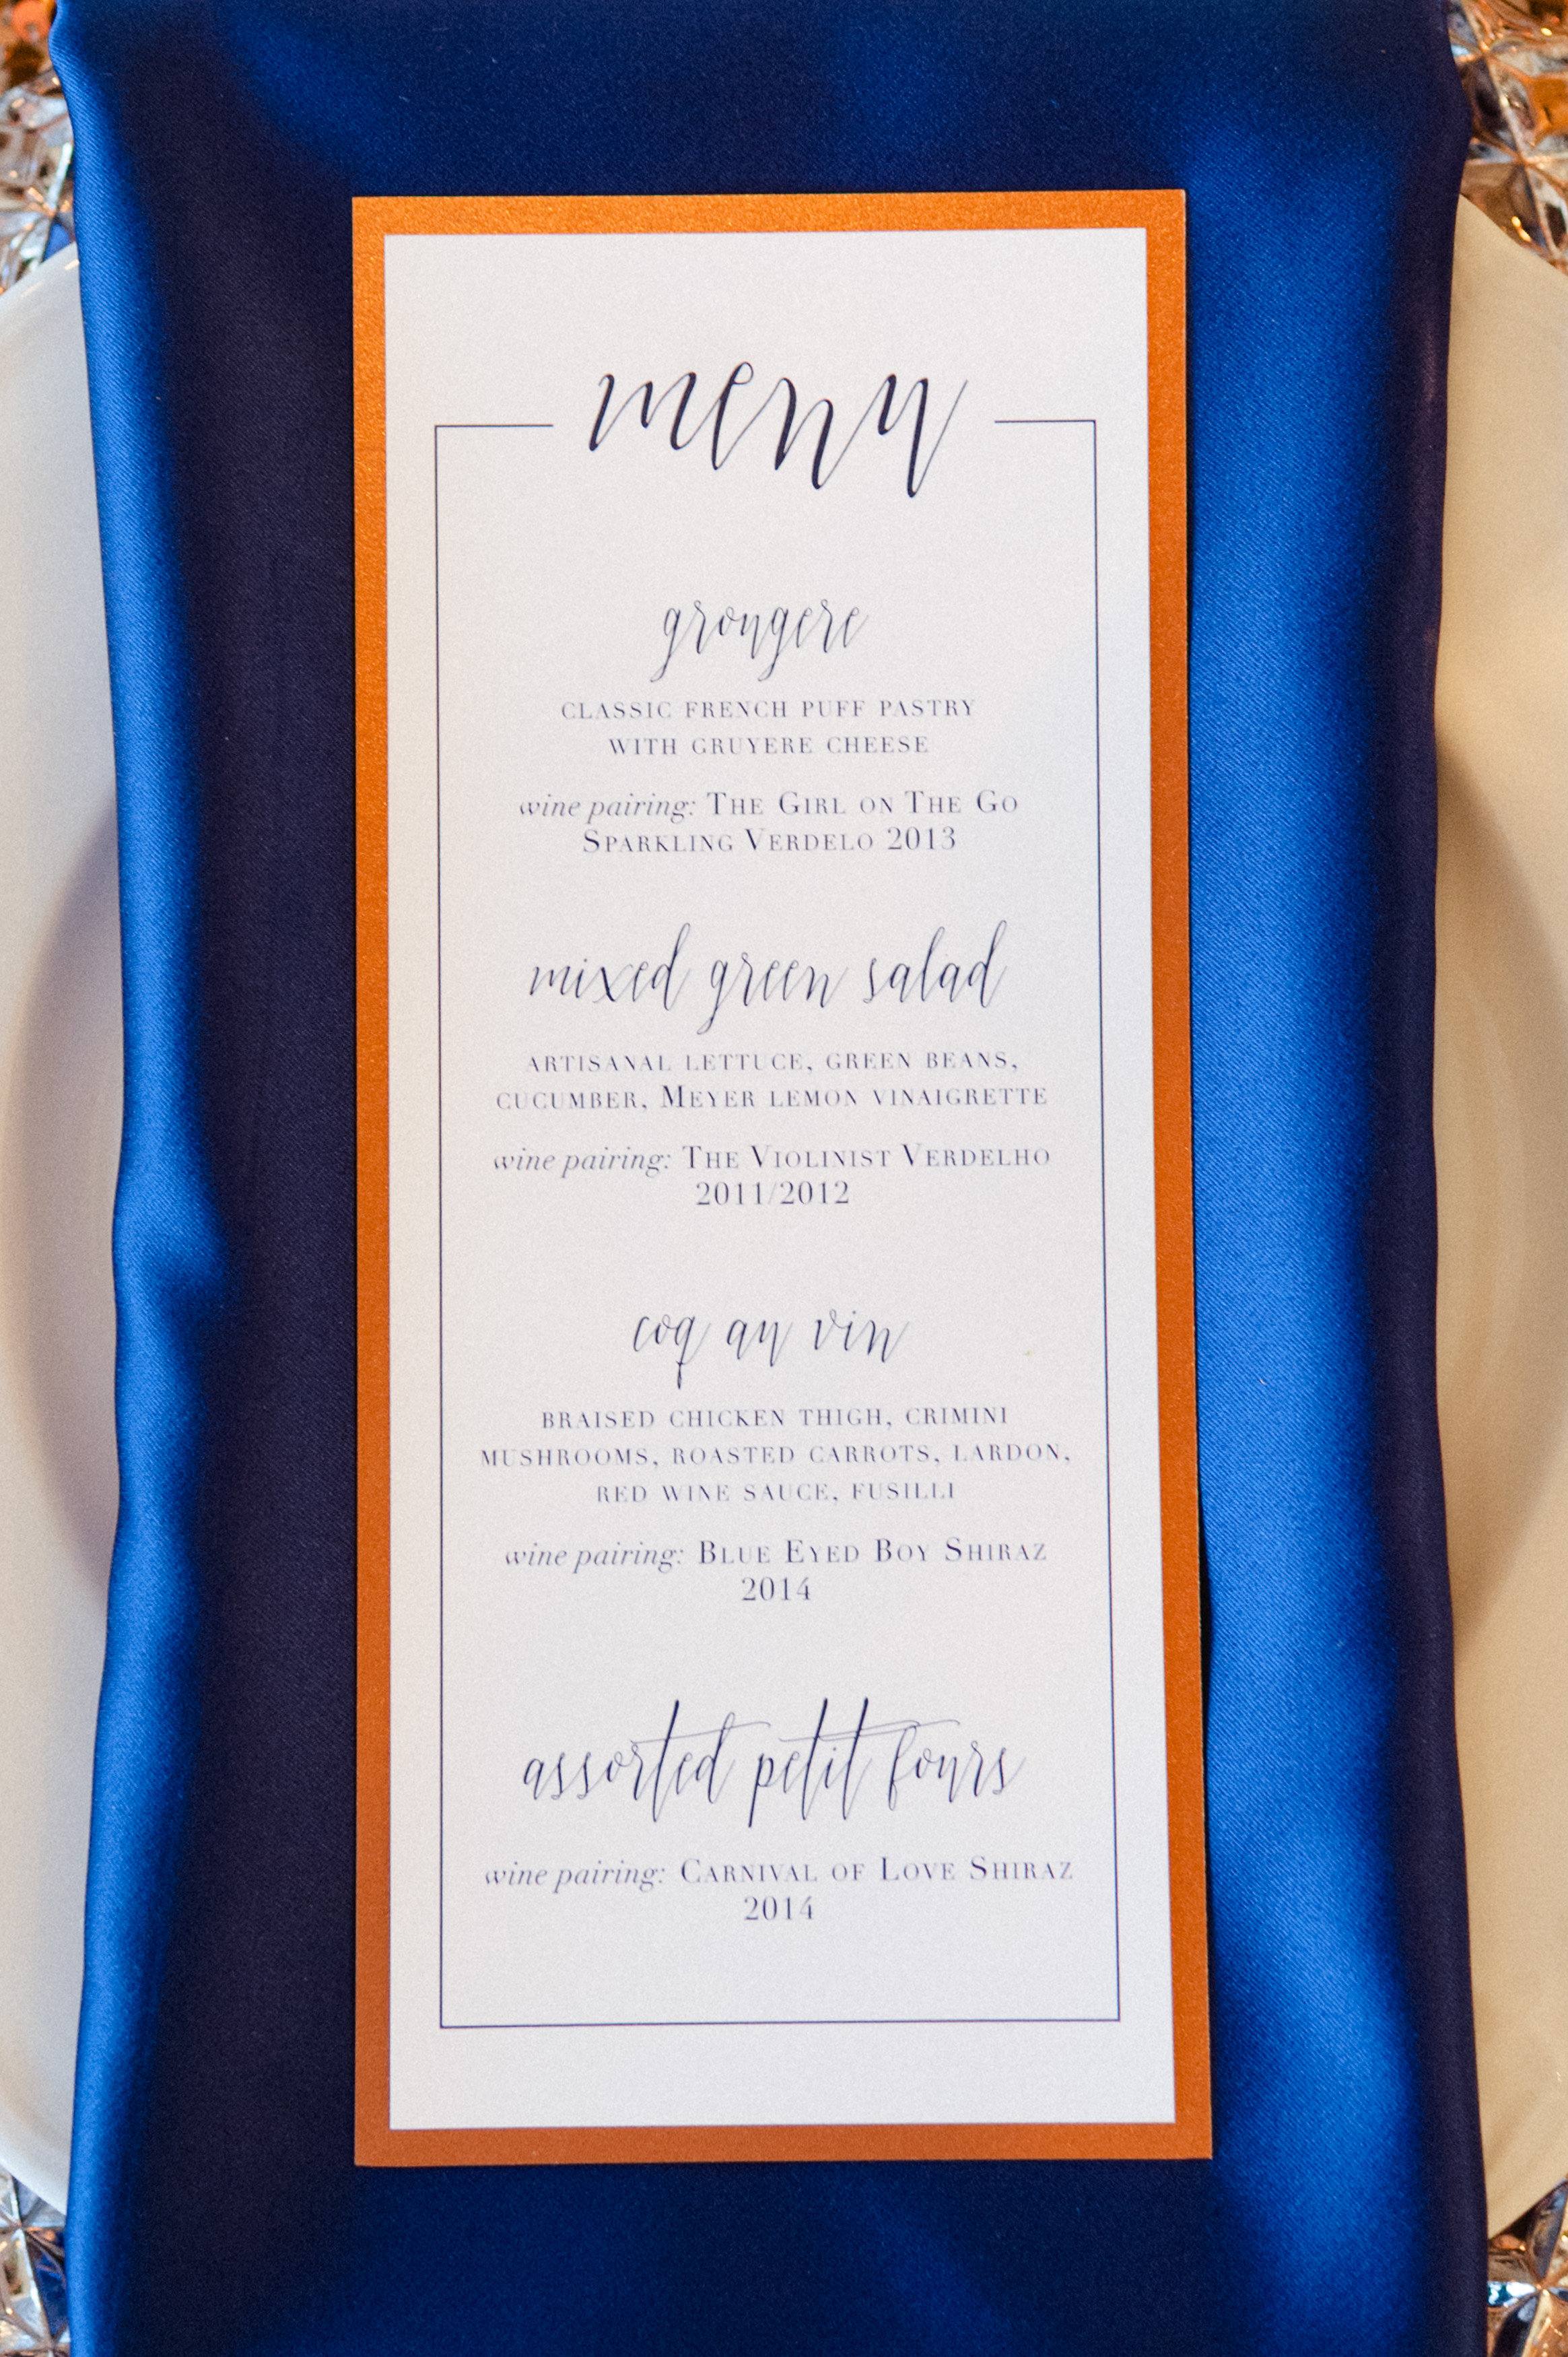 menu
grougere
CLASSIC FRENCH PUFF PASTRY
WITH GRUYERE CHEESE
wine pairing: THE GIRL ON THE GO
SPARKLING VERDELO 2013
mixed green salad
ARTISANAL LETTUCE, GREEN BEANS,
CUCUMBER, MEYER LEMON VINAIGRETTE
wine pairing: THE VIOLINIST VERDELHO
2011/2012
coq au vin
BRAISED CHICKEN THIGH, CRIMINI
MUSHROOMS, ROASTED CARROTS, LARDON,
RED WINE SAUCE, FUSILLI
wine pairing: BLUE EYED BOY SHIRAZ
2014
assorted petit fours
wine pairing: CARNIVAL OF LOVE SHIRAZ
2014